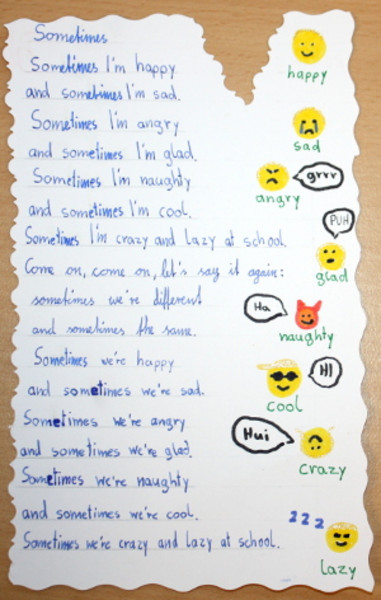 Sometimes
Sometimes I'm happy
and sometimes I'm sad.
Sometimes I'm angry
and sometimes I'm glad.
Sometimes I'm naughty
and sometimes I'm cool.
Sometimes I'm crazy and lazy at school.
Come on, come on, let's say it again:
sometimes we're different
and sometimes the same.
Sometimes we're happy
and sometimes we're sad.
Sometimes we're angry
and sometimes we're glad.
Sometimes we're naughty
and sometimes we're cool.
Sometimes we're crazy and lazy at school.
happy
sad
grrr
angry
PUH
glad
Ha
naughty
HI
cool
Hui
crazy
z z z
lazy